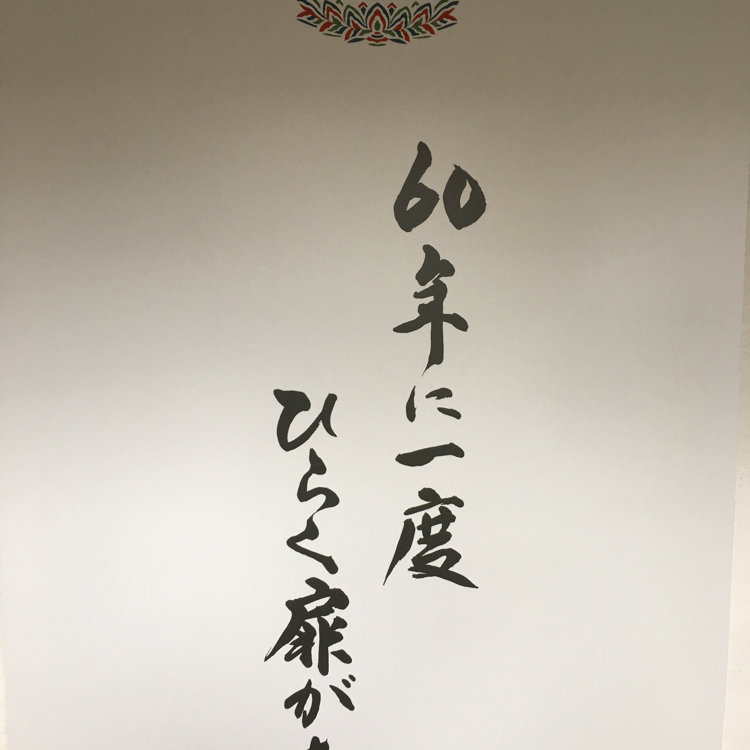 60年に一度
ひらく扉が